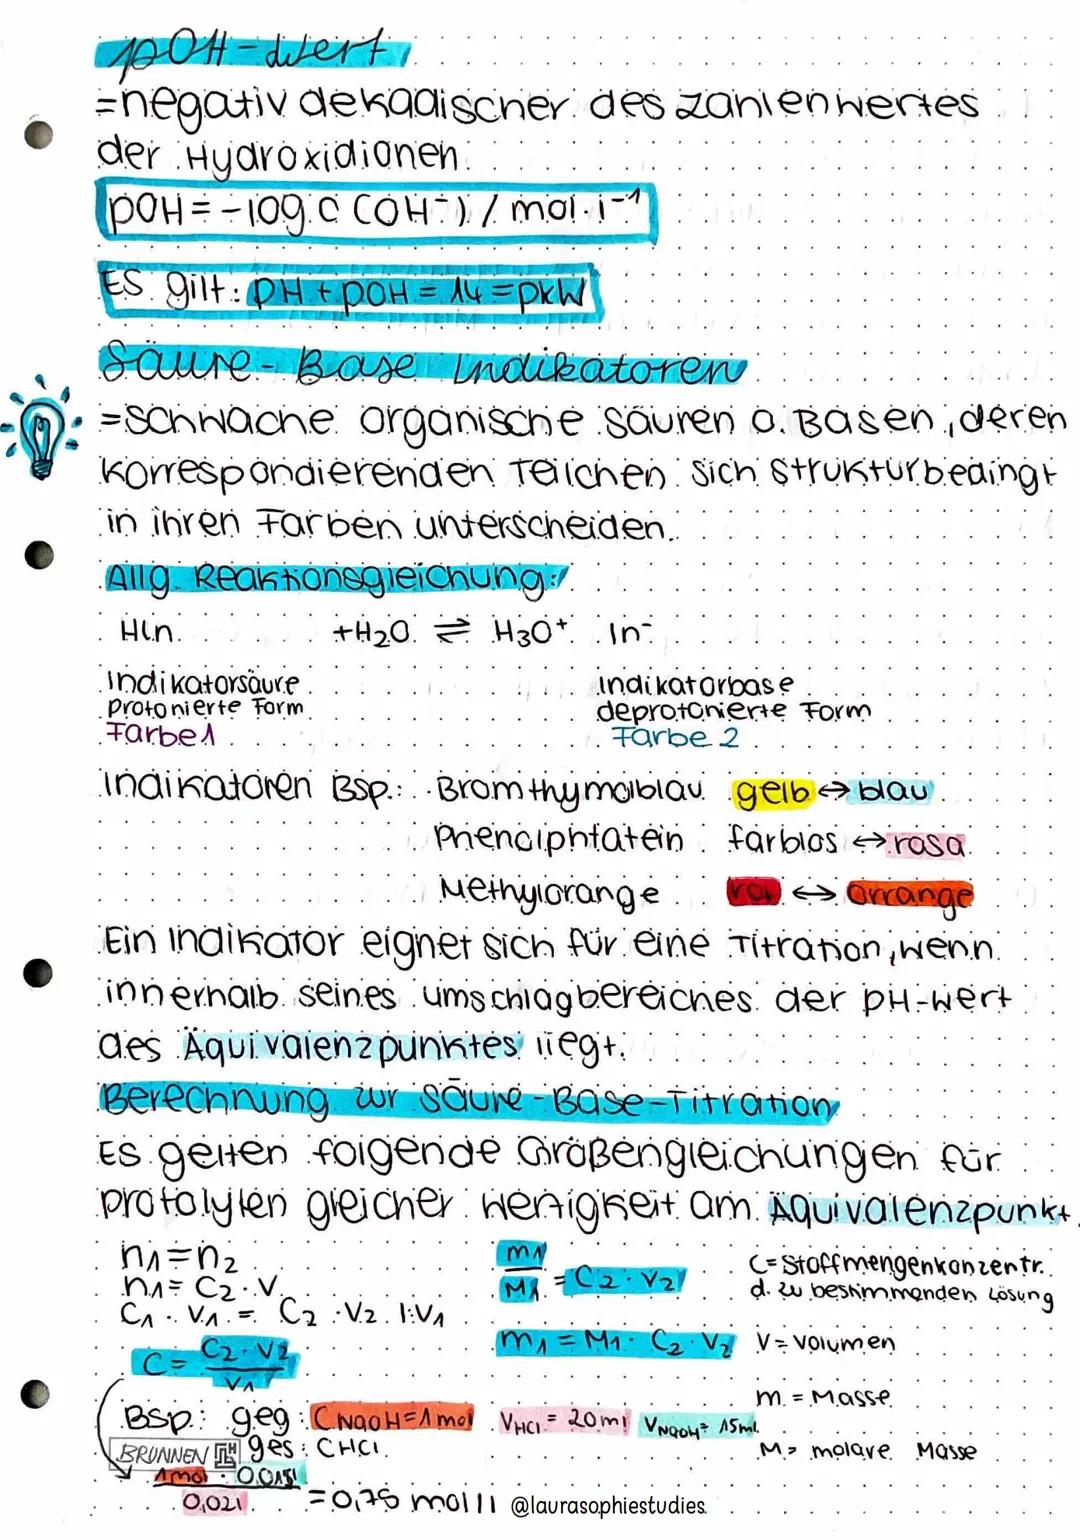 pOH-Wert
=negativ dekadischer des zahlenwertes
der Hydroxidionen
pOH = -log c (OH⁻) / mol·l⁻¹
ES gilt: pH + pOH = 14 = pkW
Säure-Base Indikatoren
=schwache organische säuren o. Basen, deren
korrespondierenden Teilchen sich strukturbedingt
in ihren Farben unterscheiden.
Allg. Reaktionsgleichung:
HIn +H₂O ⇌ H₃O⁺ In⁻
Indikatorsäure Indikatorbase
protonierte Form deprotonierte Form
Farbe 1 Farbe 2
Indikatoren Bsp.: Bromthymolblau gelb ↔ blau
Phenolphtatein farblos ↔ rosa
Methylorange rot ↔ orrange
Ein Indikator eignet sich für eine Titration, wenn
innerhalb seines umschlagbereiches der pH-wert
des Äquivalenzpunktes liegt.
Berechnung zur Säure-Base-Titration
ES gelten folgende Größengleichungen für
protolyten gleicher wertigkeit am Äquivalenzpunkt
n₁=n₂ m₁/M₁ = C₂·V₂ C=Stoffmengenkonzentr.
n₁= C₂·V d. zu bestimmenden Lösung
C₁·V₁ = C₂·V₂ |:V₁
C = C₂·V₂/V₁ m₁ = M₁·C₂·V₂ V=Volumen
m = Masse
Bsp.: geg: C NaOH=1mol V HCl = 20ml V NaOH= 15ml
BRUNNEN ges: CHCl M= molare Masse
1mol · 0,015l
0,02l =0,75 mol/l @laurasophiestudies